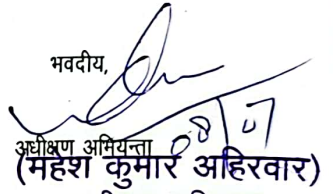 भवदीय,
08/07
अधीक्षण अभियन्ता
(महेश कुमार अहिरवार)